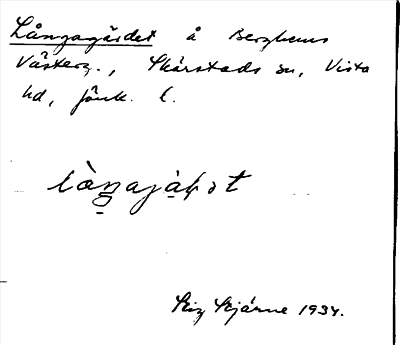 Långagärdet å Berghems
Västerg., Skärstads sn, Vista
hd, Jönk. l.
làŋajàḥət
Stig Bjärne 1934.